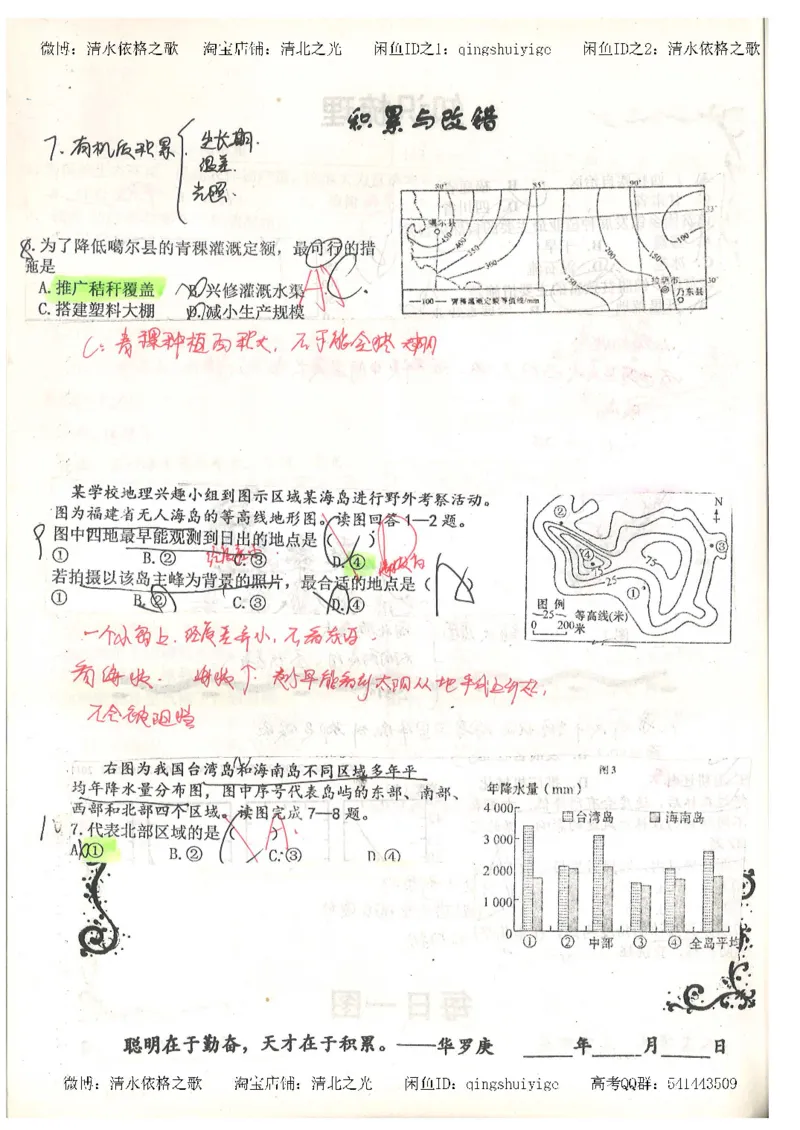 微博：清水依格之歌 淘宝店铺：清北之光 闲鱼ID之1：qingshuiyige 闲鱼ID之2：清水依格之歌
积累与改错
7. 有机质积累
生长期.
温差.
光照.
8.为了降低噶尔县的青稞灌溉定额，最可行的措
施是
A.推广秸秆覆盖 B.兴修灌溉水渠
C.搭建塑料大棚 D.减小生产规模
A
C.
80° 85° 90°
33°
噶尔县
450
400
350
300
200
150
100
拉萨市
30°
乃东县
—100— 青稞灌溉定额等值线/mm
C：青稞种植面积大，不可能全搭大棚
某学校地理兴趣小组到图示区域某海岛进行野外考察活动。
图为福建省无人海岛的等高线地形图。读图回答1—2题。
9
图中四地最早能观测到日出的地点是（ ）
① B.② C.③ D.④
D
若拍摄以该岛主峰为背景的照片，最合适的地点是（
① B.② C.③ D.④
N
②
③
④
①
75
75
25
图例
—25— 等高线(米)
0 200米
一个小岛上，经度差异小，不看经度.
看海拔. 海拔↑.
不会被阻挡
右图为我国台湾岛和海南岛不同区域多年平
均年降水量分布图，图中序号代表岛屿的东部、南部、
西部和北部四个区域。读图完成7—8题。
10
7.代表北部区域的是（ ）
A
A.① B.② C.③ D.④
图3
年降水量（mm）
4 000
台湾岛 海南岛
3 000
2 000
1 000
0
① ② 中部 ③ ④ 全岛平均
聪明在于勤奋，天才在于积累。——华罗庚 ____年____月____日
微博：清水依格之歌 淘宝店铺：清北之光 闲鱼ID：qingshuiyige 高考QQ群：541443509